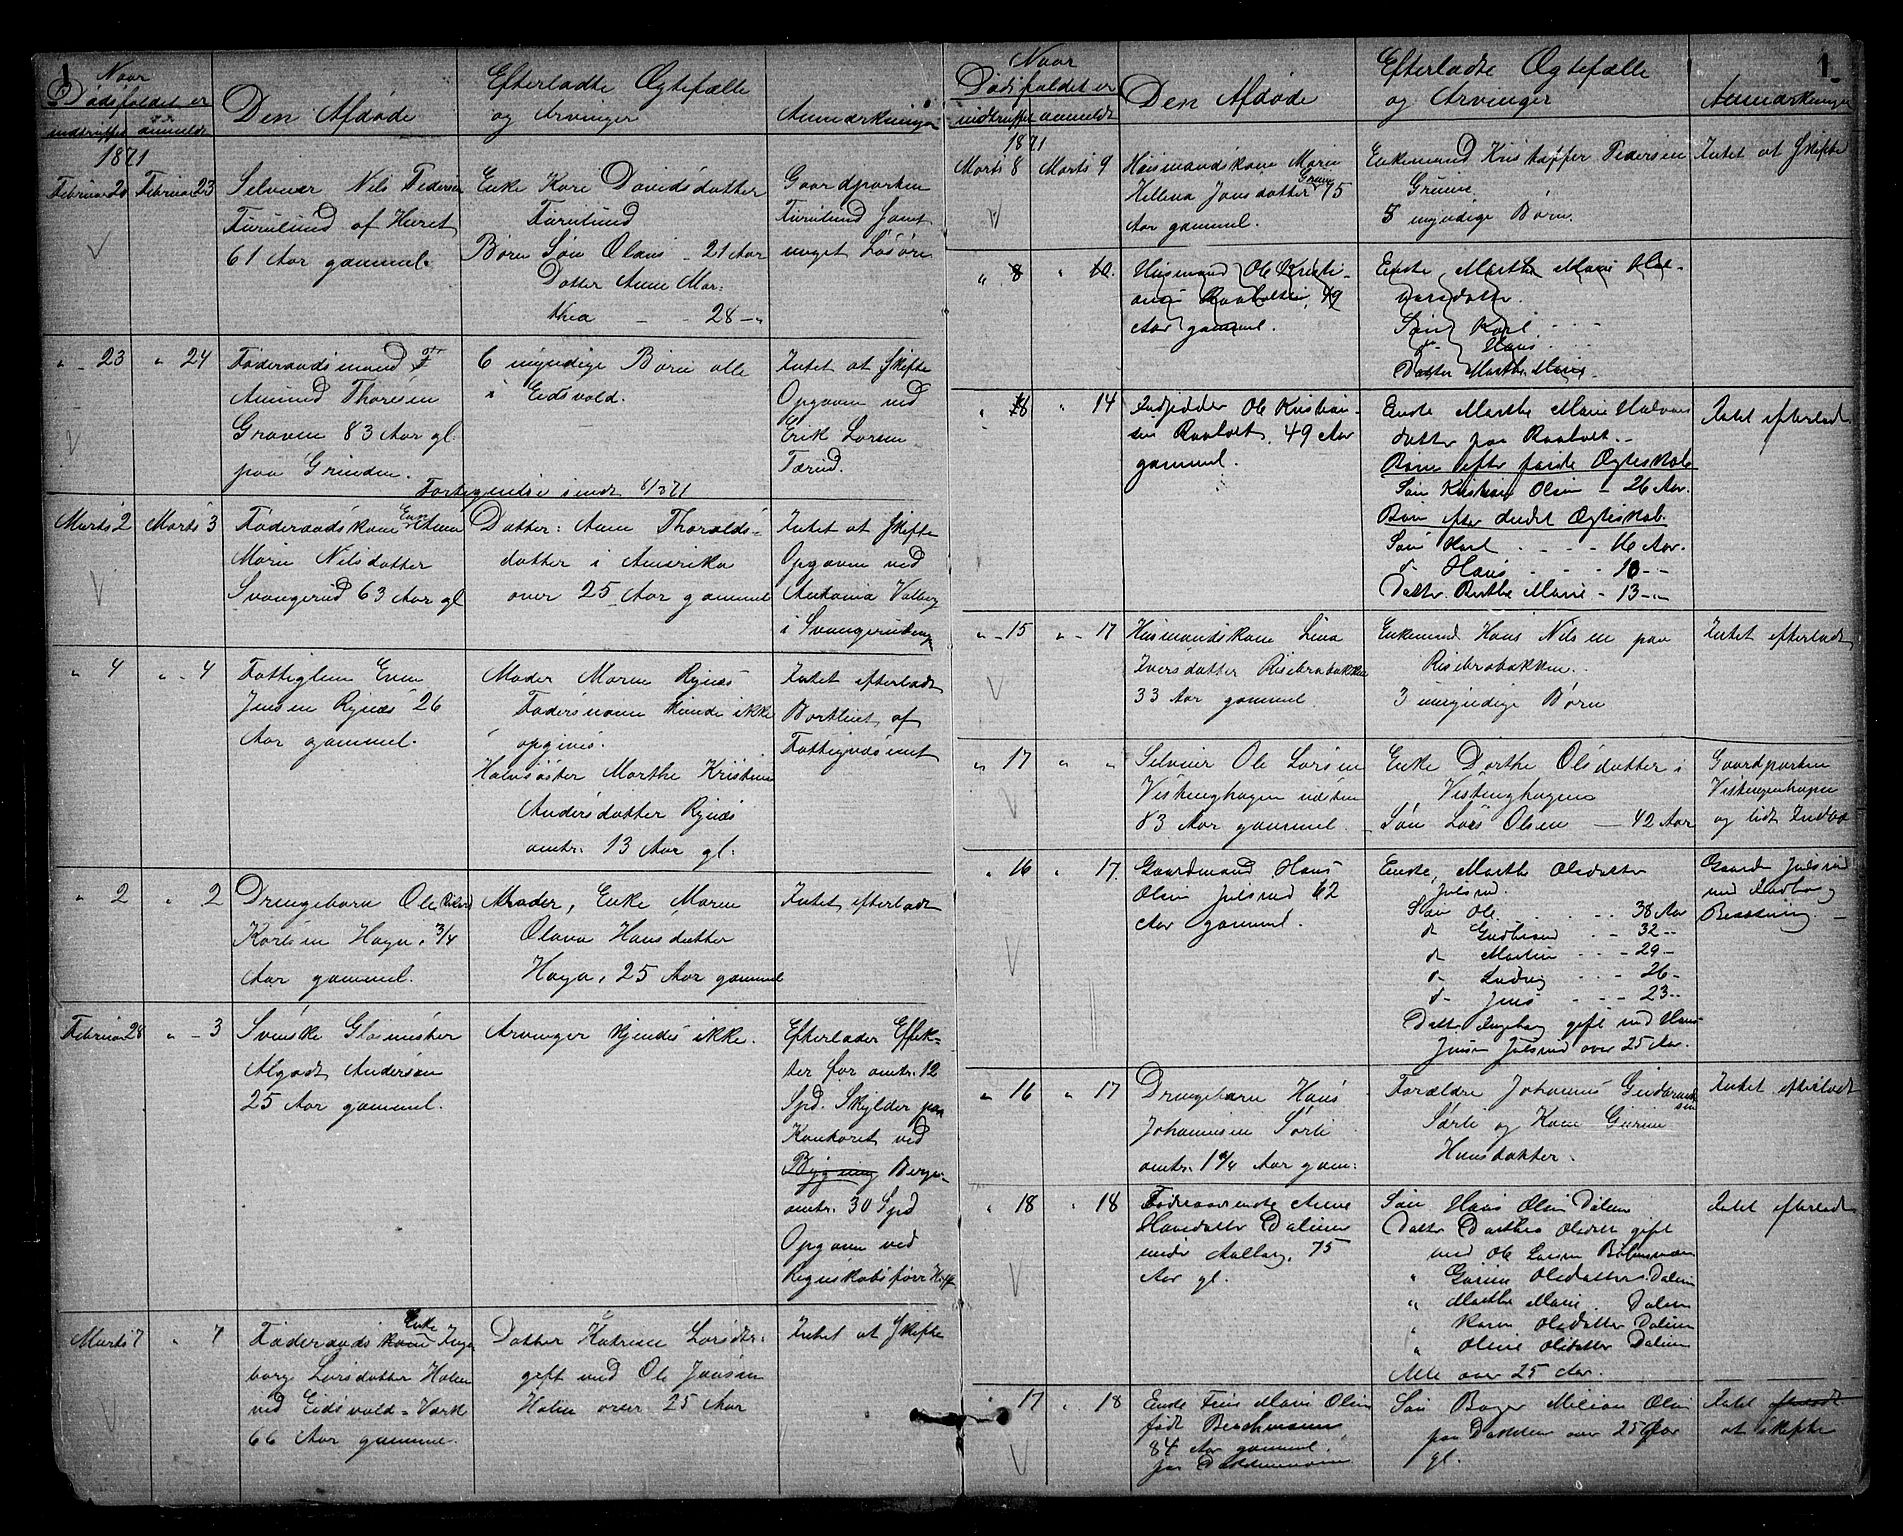 1
Naar
Dødsfaldet er
indtruffet anmeldt
Den Afdøde
Efterladte Ægtefælle
og Arvinger
Anmærkninger
1871
Februar 20 Februar 23
Selveier Nils Pedersen
Furulund af Huset
61 Aar gammel.
Enke Kari Davidsdatter
Furulund
Børn Søn Olaus - 21 Aar
Datter Anne Mar:
thea - - 28 - "
Gaardparten
Furulund samt
noget Løsøre
" - 23 " 24
Føderaadsmand
Amund Thoresen
Graven 83 Aar gl.
paa Grinden.
6 myndige Børn alle
i Eidsvold.
Intet at skifte
Opgaven ved
Erik Larsen
Tærud.
Fortegnelse sendt 8/3 71
Marts 2 Marts 3
Føderaadskone Enke Anne
Marie Nilsdatter
Svangerud 63 Aar gl
Datter: Anne Tharalds-
datter i Amerika
over 25 Aar gammel
Intet at skifte
Opgaven ved
Antonia
i
" 4 " - 4
Fattiglem Even
Jensen Rynæs 26
Aar gammel.
Moder Maren Rynæs
Fadersnavn kunde ikke
opgives.
Halvsøster Marthe Kristine
Andersdatter Rynæs
omtr. 13 Aar gl.
Intet efterladt
Bortlient af
Fattigvæsenet
" 2 " 2
Drengebarn Ole
Karlsen Haga, 3/4
Aar gammel.
Moder, Enke Maren
Olava Hansdatter
Haga, 25 Aar gammel
Intet efterladt
Februar 28 " - 3
Svenske Glasmester
Algodt Andersen
25 Aar gammel.
Arvinger kjendes ikke.
Efterlader Effek-
ter for omtr. 12
Spd. Skylder paa
Kontoret ved
Bygning Berge
omtr. 30 Spd
Opgaven ved
Regnskabsfører
Marts 7 " 7
Føderaadskone Enke Inge
borg Larsdatter Holm
ved Eidsvold-Værk
66 Aar gammel.
Datter Katrine Larsdtr.
gift med Ole Jansen
Holm over 25 Aar
Intet at skifte
1
Naar
Dødsfaldet er
indtruffet anmeldt
Den Afdøde
Efterladte Ægtefælle
og Arvinger
Anmærkninger
1871
Marts 8 Marts 9
Husmandskone Marie
Hellena Jonsdatter Grue 75
Aar gammel.
Enkemand Kristoffer Pedersen
Grue
8 myndige Børn.
Intet at skifte
" 8 " 10.
Husmand Ole Kristi-
ansen Raaholt, 49
Aar gammel.
Enke, Marthe Marie Hal-
vorsdatter.
Søn Karl - - -
do Hans - - -
Datter Marthe Marie
" 8 " 14
Indsidder Ole Kristian-
sen Raaholt, 49 Aar
gammel.
Enke Marthe Marie Halvors
datter paa Raaholt.
Børn efter første Ægteskab
Søn Kristian Olsen - 26 Aar.
Børn efter andet Ægteskab
Søn Karl - - - 16 Aar.
do Hans - - - 10 - -
Datter Berthe Marie - 13 - "
Intet efterladt
" - 15 " - 17
Husmandskone Lina
Iversdatter Risebrobakken
33 Aar gammel
Enkemand Hans Nilsen paa
Risebrobakken.
3 umyndige Børn
Intet efterladt
" 17 " "
Selveier Ole Larsen
Vistinghagen
83 Aar gammel.
Enke Dorthe Olsdatter i
Vistinghagen
Søn Lars Olsen - 42 Aar
Gaardparten
Vistingenhagen
og lidt Indbo
" 16 " 17.
Gaardmand Hans
Olsen Julsrud 62
Aar gammel.
Enke, Marthe Olsdatter
Julsrud.
Søn Ole - - - 38 Aar
do Gudbrand - - 32 - -
do Martin - - - 29 -
do Ludvig - - - 26 -
do Jens - - - 23 - -
Datter Ingeborg gift med Hans
Jensen Julsrud over 25 Aar.
Gaarden Julsrud
med Indbo og
Besætning -
" 16 " 17
Drengebarn Hans
Johannesen Sørli
omtr. 1 3/4 Aar gam:
Forældre Johannes Gudbrand
sen
Sørli og Kone Gurine
Hansdatter.
Intet efterladt
" 18 " 18
Føderaadsenke Anne
Hansdatter Dalen
under Aalborg, 75
Aar gl.
Søn Hans Olsen Dalen
Datter Dorthea Olsdtr gift
med Ole Larsen
" Gurine Olsdatter Dalen
" Marthe Marie Dalen
" Karen Olsdatter Dalen
" Oline Olsdatter Dalen
Alle over 25 Aar.
Intet efterladt
" 17 " 18
Enke Marie Olsen
født
84 Aar gammel.
paa
Søn Olsen
paa over 25 Aar
gl.
Intet efterladt
at skifte